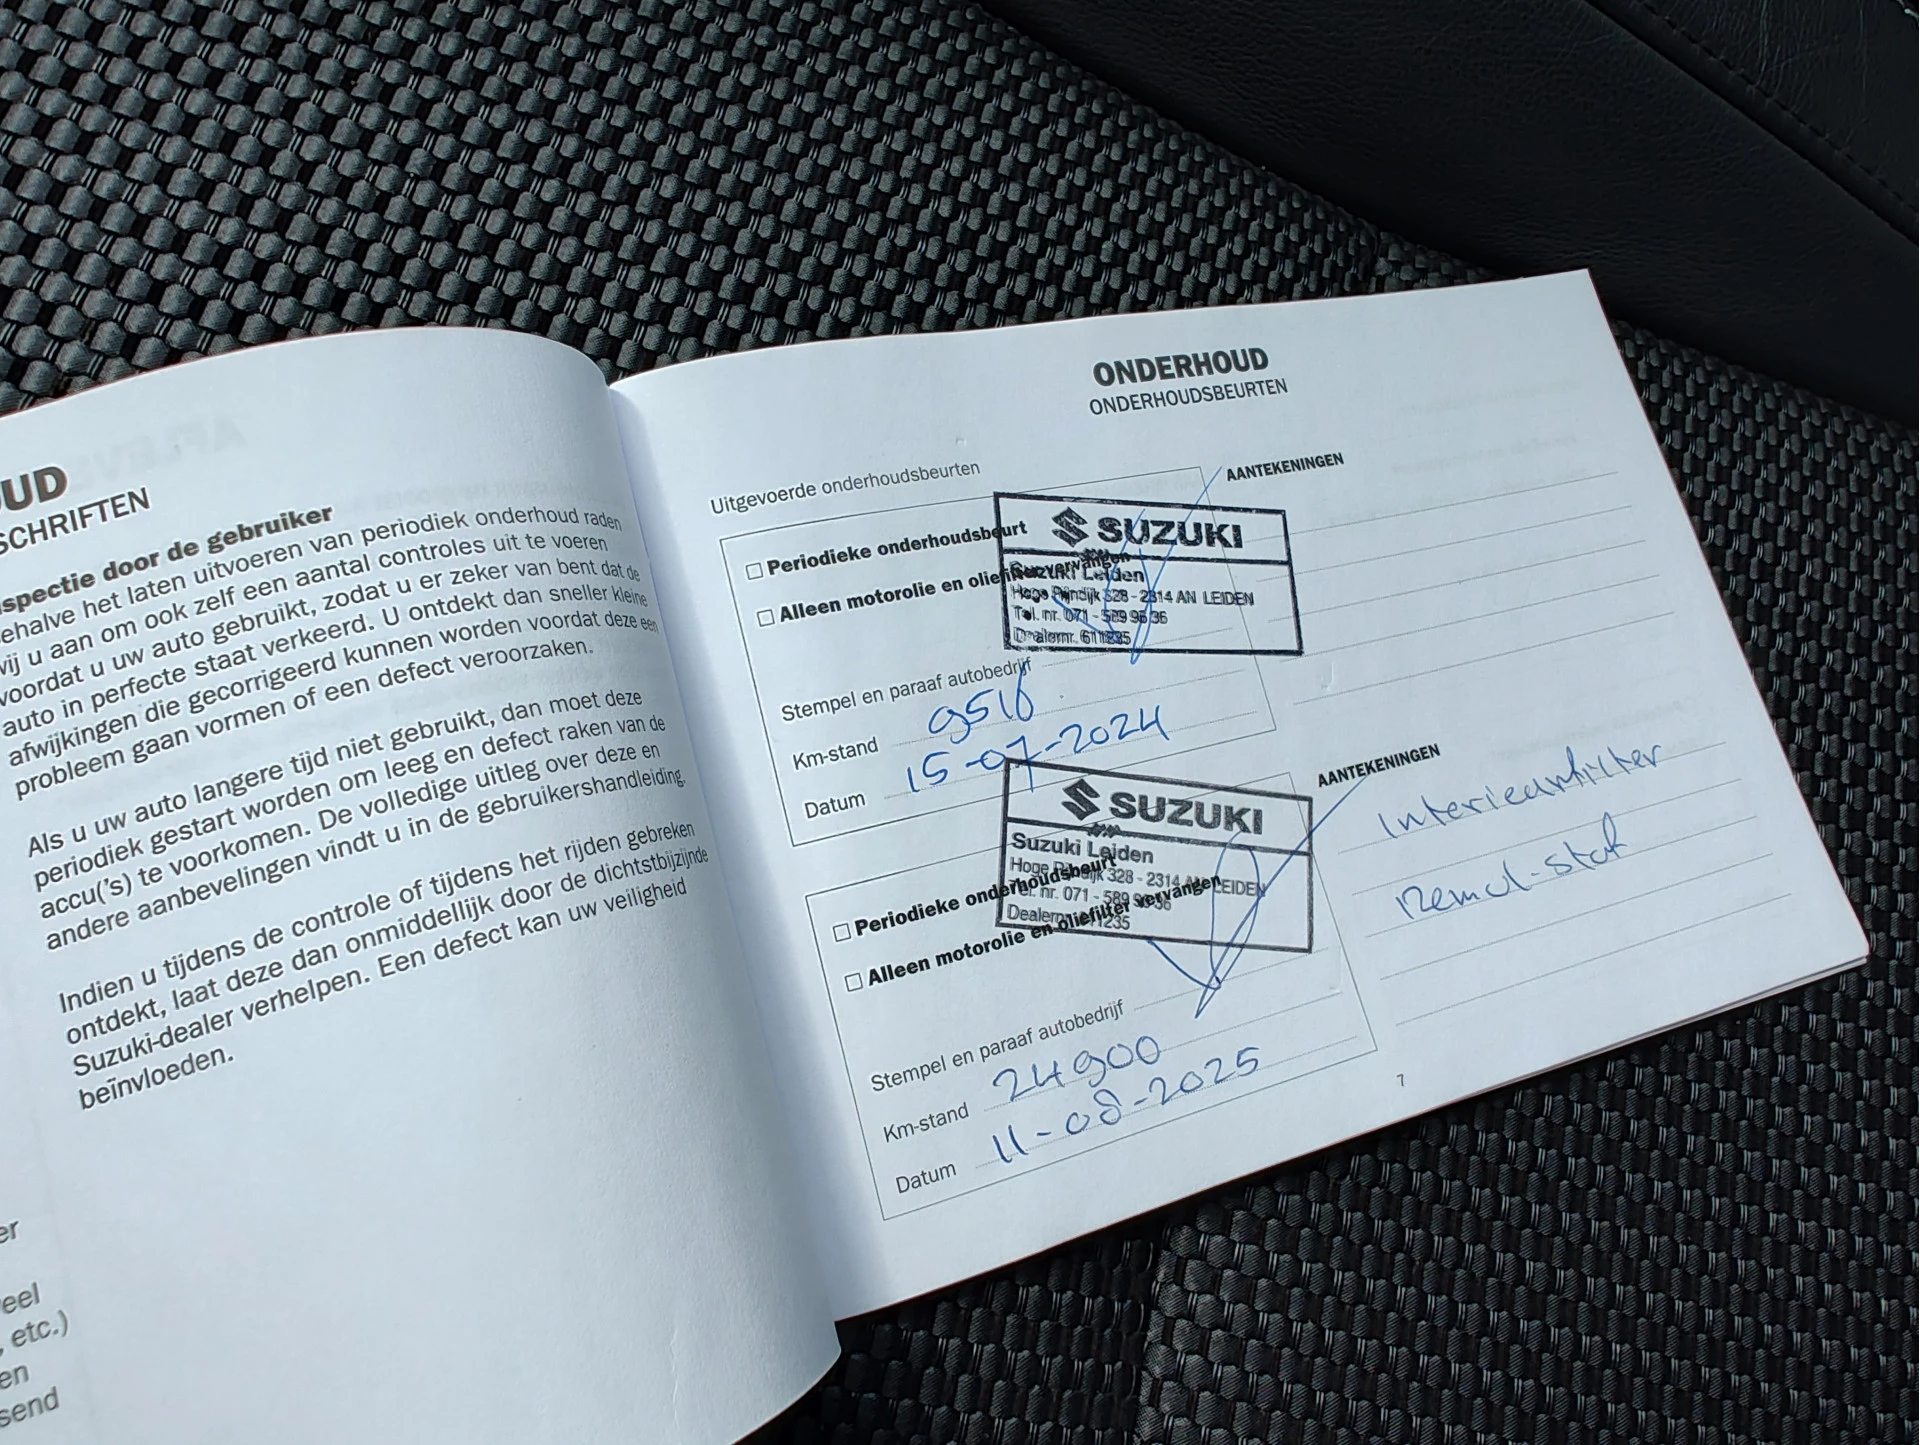 UD
SCHRIFTEN
spectie door de gebruiker
ehalve het laten uitvoeren van periodiek onderhoud raden
wij u aan om ook zelf een aantal controles uit te voeren
voordat u uw auto gebruikt, zodat u er zeker van bent dat de
auto in perfecte staat verkeerd. U ontdekt dan sneller kleine
afwijkingen die gecorrigeerd kunnen worden voordat deze een
probleem gaan vormen of een defect veroorzaken.
Als u uw auto langere tijd niet gebruikt, dan moet deze
periodiek gestart worden om leeg en defect raken van de
accu('s) te voorkomen. De volledige uitleg over deze en
andere aanbevelingen vindt u in de gebruikershandleiding.
Indien u tijdens de controle of tijdens het rijden gebreken
ontdekt, laat deze dan onmiddellijk door de dichtstbijzijnde
Suzuki-dealer verhelpen. Een defect kan uw veiligheid
beïnvloeden.
er
eel
, etc.)
en
send
ONDERHOUD
ONDERHOUDSBEURTEN
Uitgevoerde onderhoudsbeurten
AANTEKENINGEN
Periodieke onderhoudsbeurt
Alleen motorolie en oliefilter vervangen
SUZUKI
Suzuki Leiden
Hoge Rijndijk 328 - 2314 AN LEIDEN
Tel. nr. 071 - 589 96 36
Dealernr. 611235
Stempel en paraaf autobedrijf
Km-stand 9516
Datum 15-07-2024
AANTEKENINGEN
Interieurfilter
Remvl-stof
Periodieke onderhoudsbeurt
Alleen motorolie en oliefilter vervangen
SUZUKI
Suzuki Leiden
Hoge Rijndijk 328 - 2314 AN LEIDEN
Tel. nr. 071 - 589 96 36
Dealernr. 611235
Stempel en paraaf autobedrijf
Km-stand 24900
Datum 11-08-2025
7